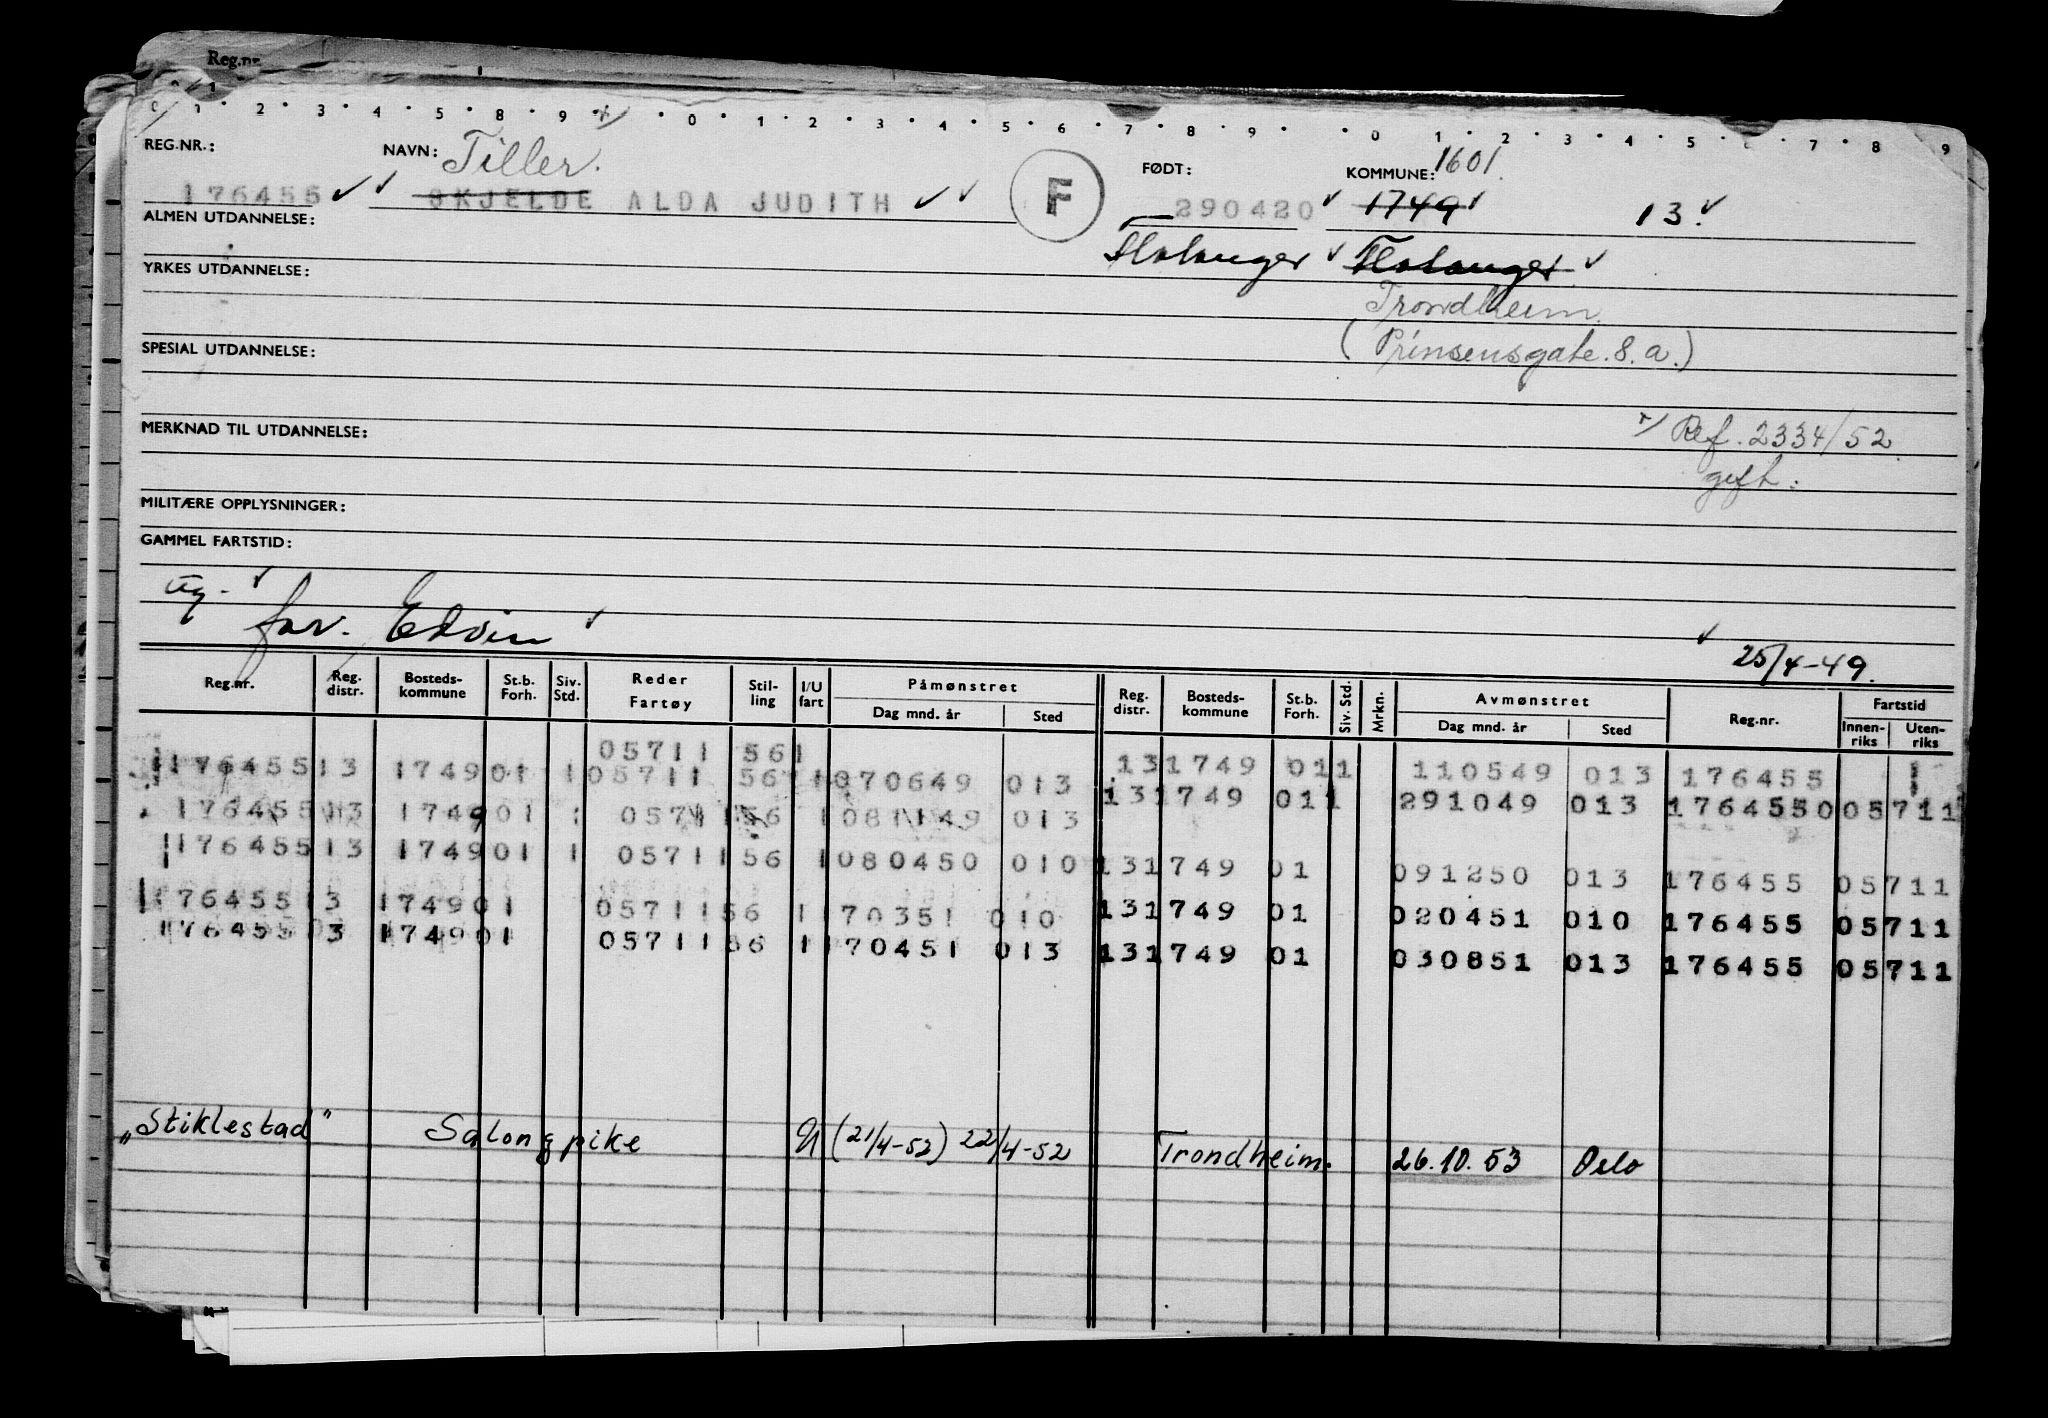 Reg.nr.
0 1 2 3 4 5 8 9 0 1 2 3 4 5 6 7 8 9 0 1 2 3 4 5 7 8 9
REG.NR.: NAVN: Tiller. F FØDT: KOMMUNE: 1601.
176455 SKJELDE ALDA JUDITH 290420 1749 13.
ALMEN UTDANNELSE: Flatanger Flatanger
YRKES UTDANNELSE:
Trondheim.
SPESIAL UTDANNELSE: (Prinsensgate. 8. a.)
MERKNAD TIL UTDANNELSE: x/ Ref. 2334/52
gift.
MILITÆRE OPPLYSNINGER:
GAMMEL FARTSTID:
ug.
far. Edvin
25/4-49.
Reg.nr. Reg. distr. Bosteds-kommune St.b. Forh. Siv. Std. Reder Fartøy Stil-ling I/U fart Påmønstret Dag mnd. år Sted Reg. distr. Bosteds-kommune St.b. Forh. Siv. Std. Mrkn. Avmønstret Dag mnd. år Sted Reg.nr. Fartstid Innen-riks Uten-riks
05711 561 131749 011 110549 013 176455
176455 13 1749 01 1 05711 56 1 070649 013 131749 011 291049 013 1764550 05711
176455 13 1749 01 1 05711 56 1 081149 013
176455 13 1749 01 1 05711 56 1 080450 010 131749 01 091250 013 176455 05711
176455 13 1749 01 05711 56 1 170351 010 131749 01 020451 010 176455 05711
176455 13 1749 01 05711 56 1 170451 013 131749 01 030851 013 176455 05711
„Stiklestad" Salongpike U (21/4-52) 22/4-52 Trondheim. 26.10.53 Oslo